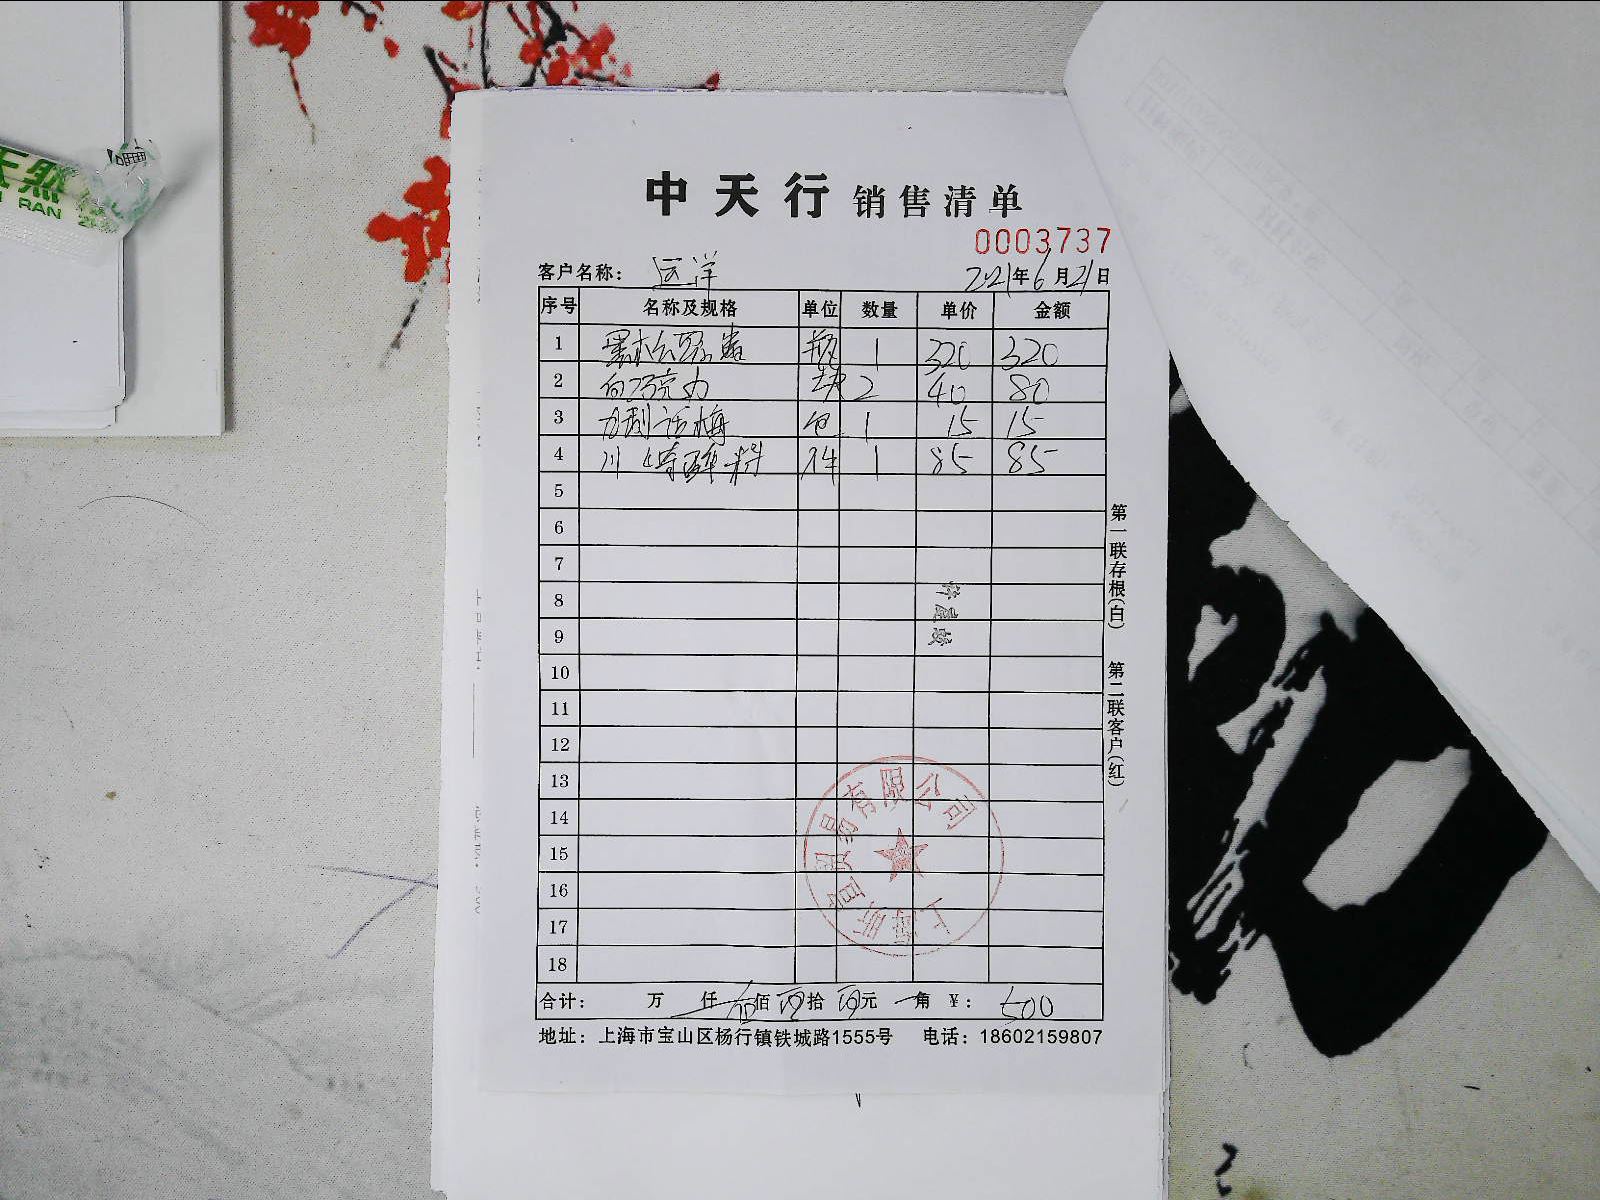 天然
RAN
中天行 销售清单
0003737
客户名称: 远洋 2021年6月21日
序号 名称及规格 单位 数量 单价 金额
1 黑松 瓶 1 320 320
2 白巧克力 块 2 40 80
3 话梅 包 1 15 15
4 川崎 料 件 1 85 85
5
6
7
8
9
10
11
12
13
14
15
16
17
18
第一联存根(白) 第二联客户(红)
上海 贸易有限公司
合计: 万 仟 伍佰 拾 元 角 ¥: 500
地址: 上海市宝山区杨行镇铁城路1555号 电话: 18602159807